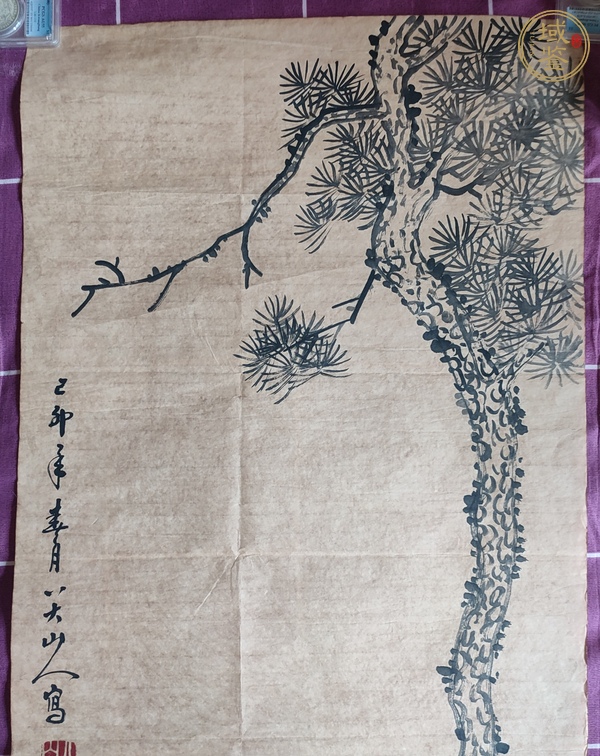 己卯年春月八大山人寫
域鉴